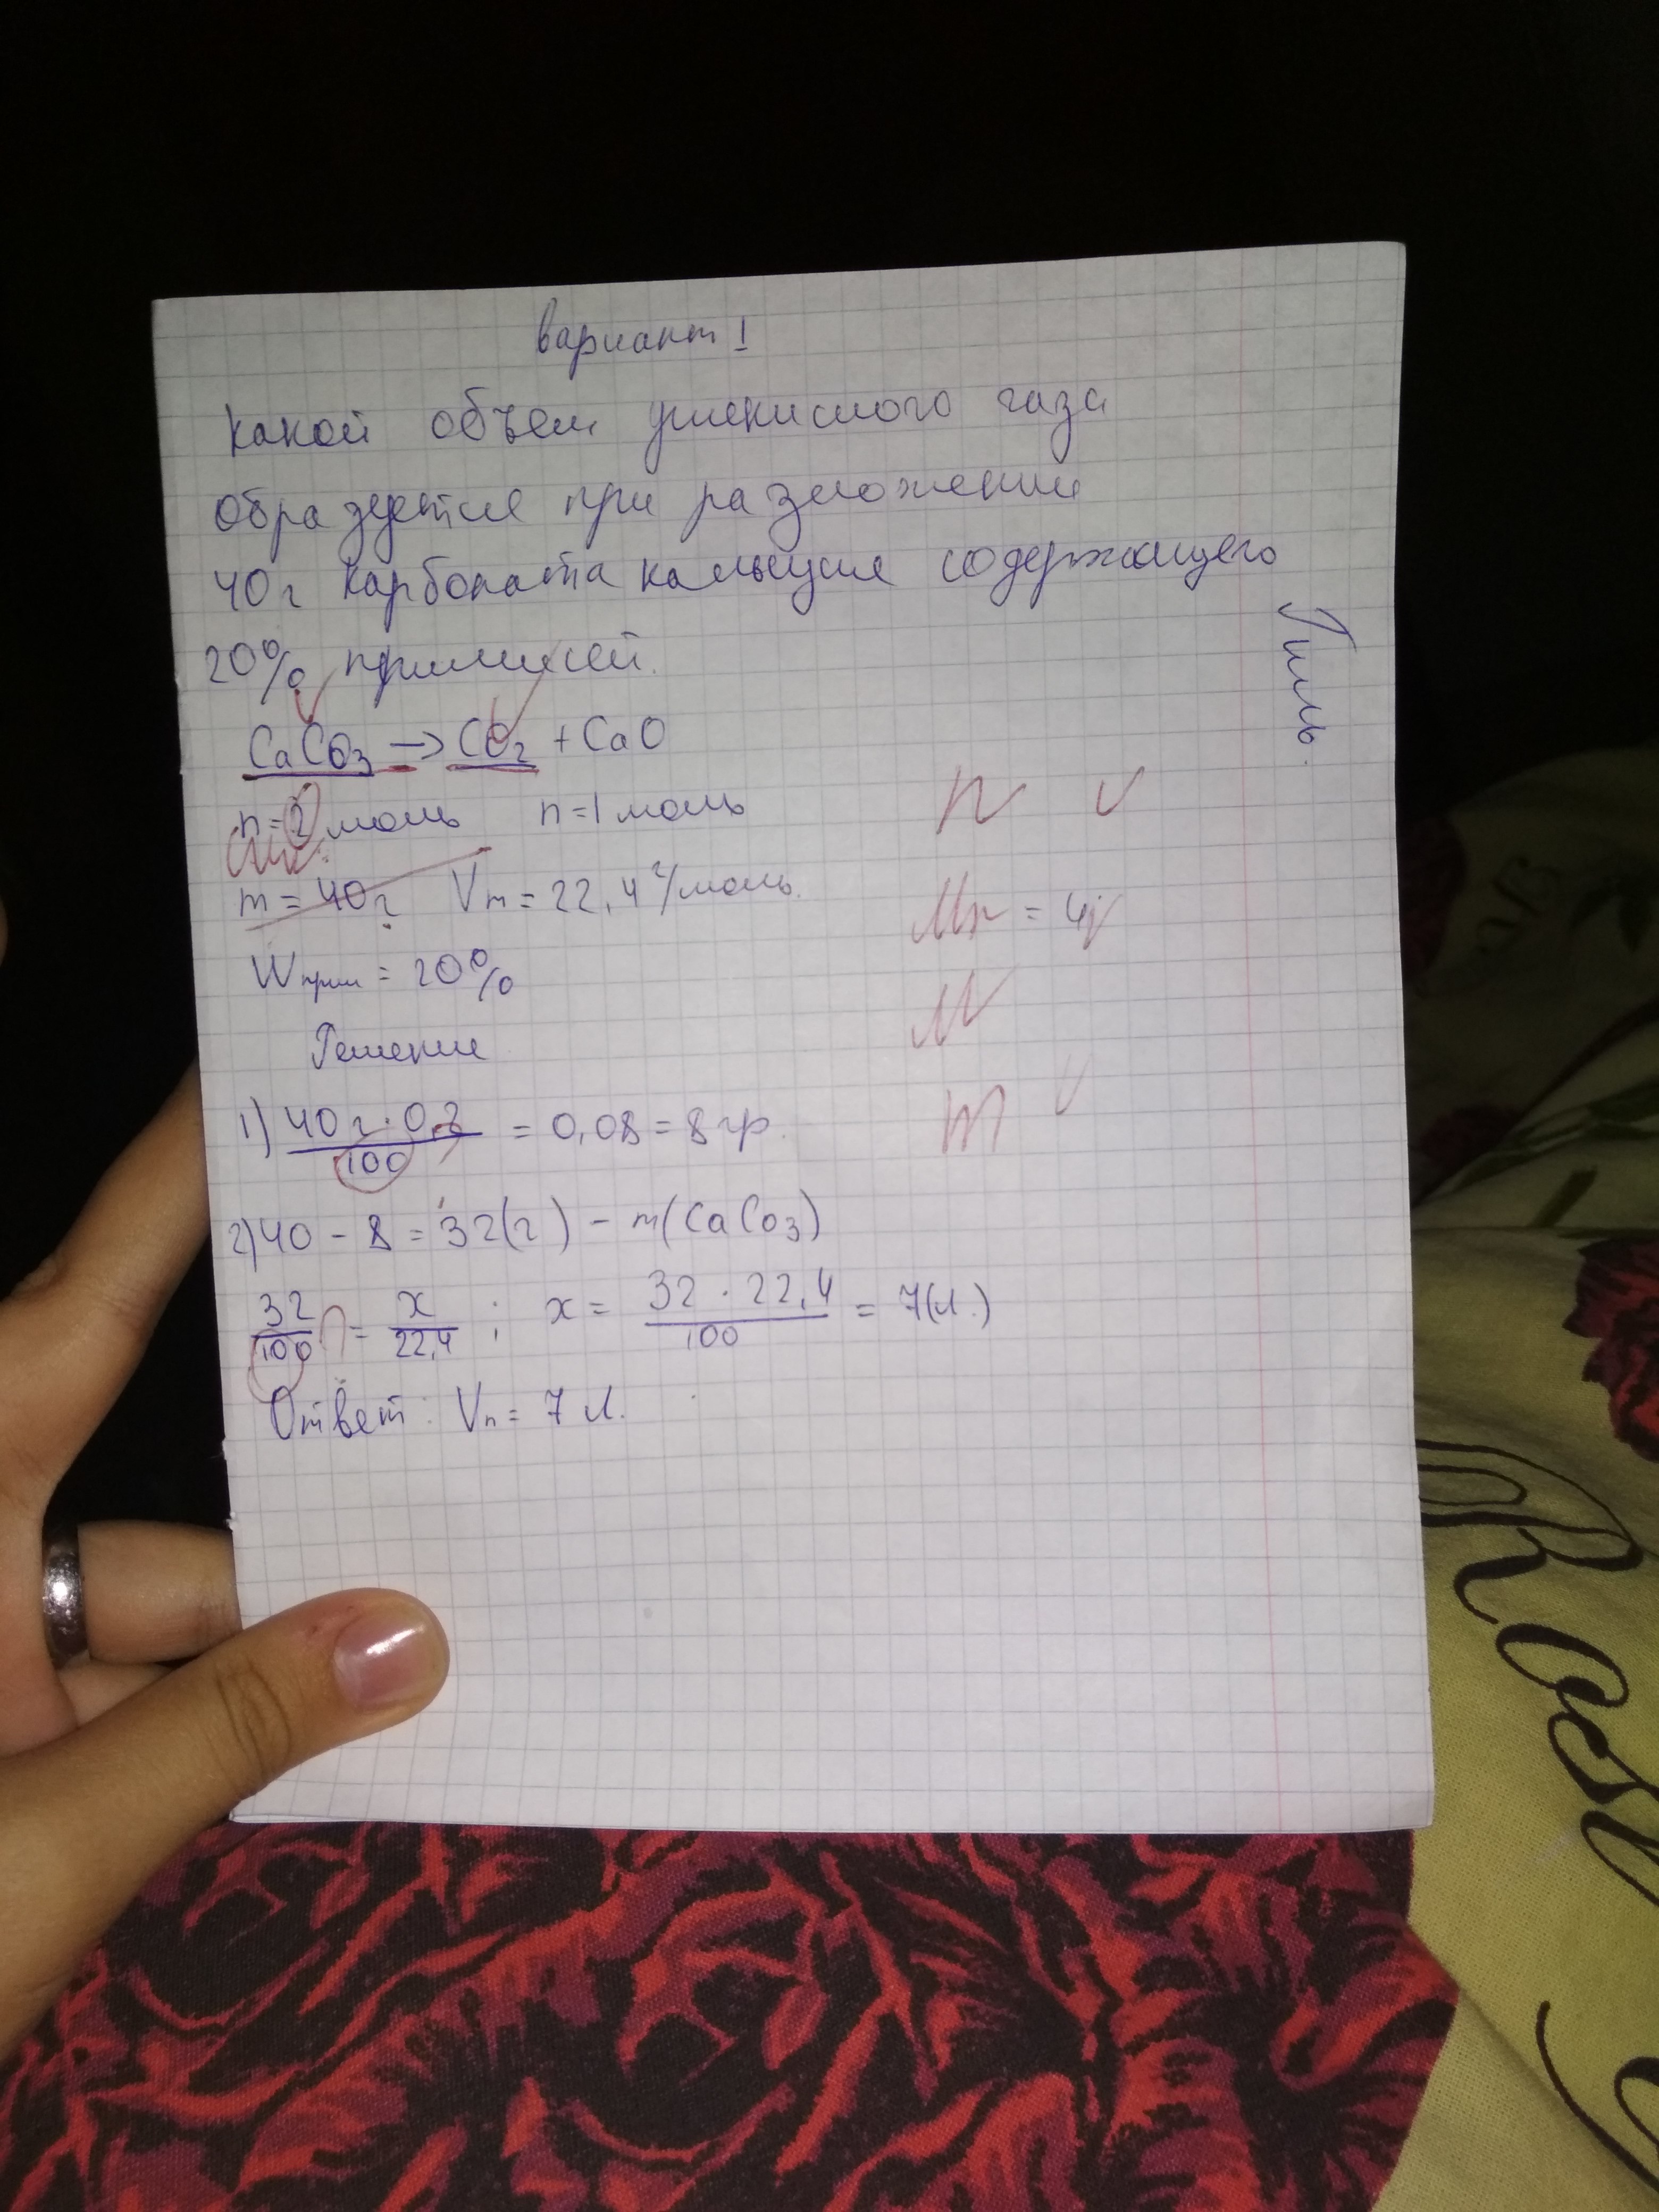 вариант I
Какой объем углекислого газа
образуется при разложении
40 г карбоната кальция содержащего
20% примесей.
Гиль.
CaCO3 → CO2 + CaO
n = 2 моль n = 1 моль
n v
m = 40 г Vm = 22,4 г/моль.
Mr = 4
Wприм = 20%
M
Решение
1) 40 г · 0,2 / 100 = 0,08 = 8 гр.
m v
2) 40 - 8 = 32(г) - m(CaCo3)
32/100 = x/22,4 ; x = 32 · 22,4 / 100 = 7(л.)
Ответ: Vn = 7 л.
Rose